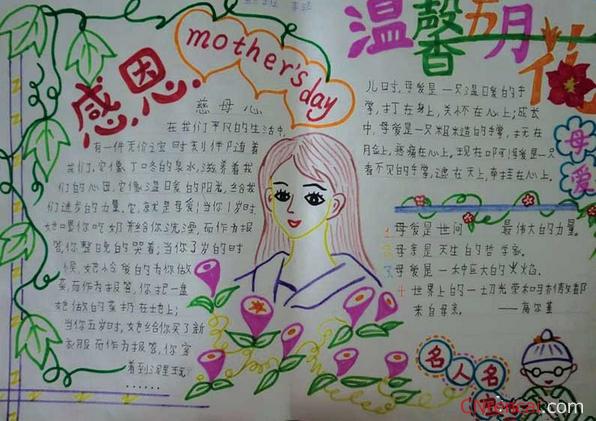 感恩
mother's day
温馨五月花
慈母心
在我们平凡的生活中,
有一件无价之宝时刻伴随着
我们,它像叮咚的泉水,滋养着我
们的心田,它像温暖的阳光,给我
们进步的力量,它就是母爱!当你1岁时,
她喂你吃奶并给你洗澡,而作为报
答,你整晚的哭着;当你3岁的时
候,她怜爱的为你做
菜,而作为报答,你把一盘
她做的菜扔在地上;
当你五岁时,她给你买了新
衣服,而作为报答,你穿
着到泥里玩
......
儿时,母爱是一只温暖的手
掌,打在身上,关怀在心上;成长
中,母爱是一只粗糙的手掌,抚在
上,疼痛在心上,现在啊!母爱是一只
看不见的手掌,远在天上,牵挂在心上。
母爱
1 母爱是世间 最伟大的力量。
母亲是天生的哲学家。
3 母爱是一种巨大的火焰。
4 世界上的一切光荣和骄傲都
来自母亲。 ——高尔基
名人名言
.com